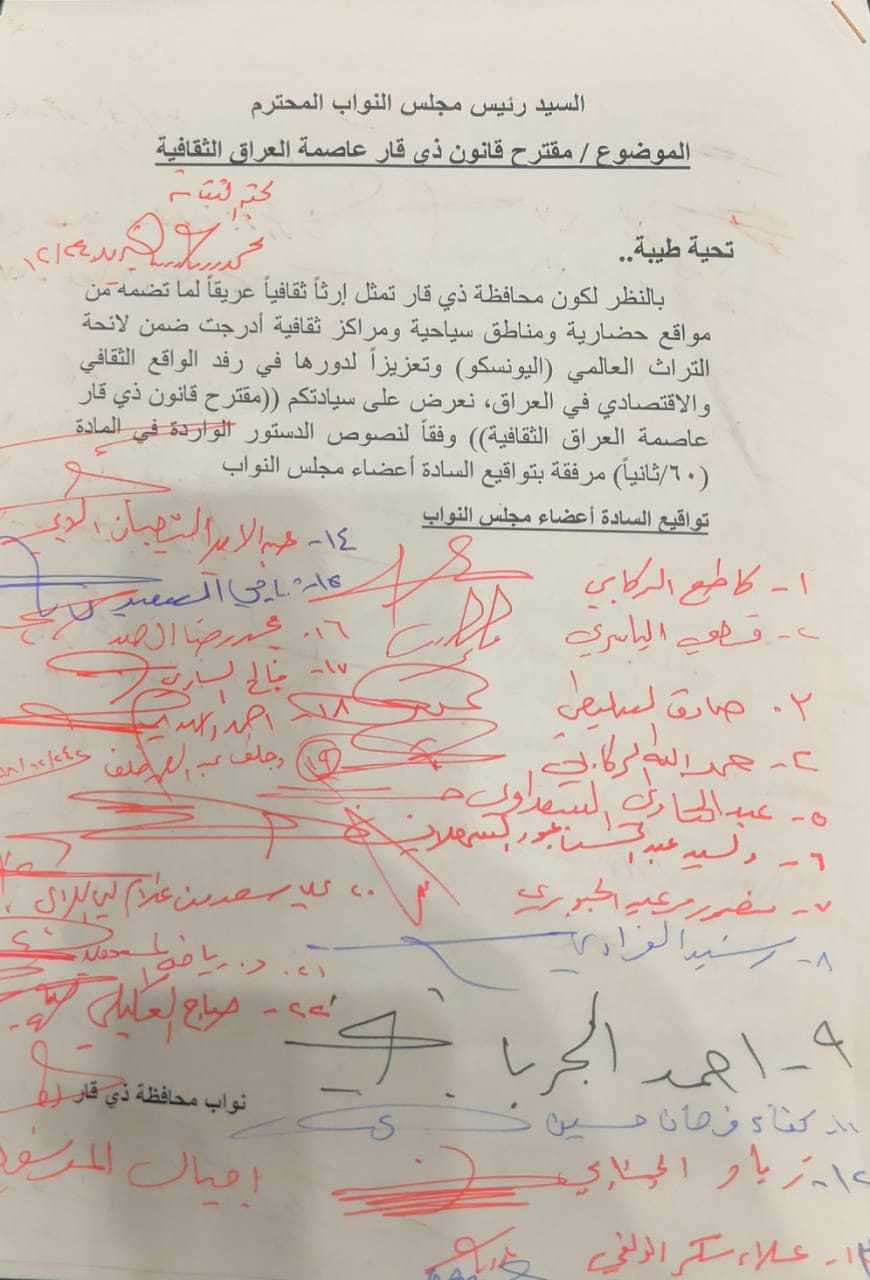 السيد رئيس مجلس النواب المحترم
الموضوع / مقترح قانون ذي قار عاصمة العراق الثقافية
تحية طيبة..
بالنظر لكون محافظة ذي قار تمثل إرثاً ثقافياً عريقاً لما تضمه من
مواقع حضارية ومناطق سياحية ومراكز ثقافية أدرجت ضمن لائحة
التراث العالمي (اليونسكو) وتعزيزاً لدورها في رفد الواقع الثقافي
والاقتصادي في العراق، نعرض على سيادتكم ((مقترح قانون ذي قار
عاصمة العراق الثقافية)) وفقاً لنصوص الدستور الواردة في المادة
(٦٠/ثانياً) مرفقة بتواقيع السادة أعضاء مجلس النواب
تواقيع السادة أعضاء مجلس النواب
١- كاطع الركابي
٢- قصي الياسري
٣- صادق السليطي
٤- حمد الله الركابي
٥- عبد الهادي السعداوي
٦- وليد عبد السهلاني
٧- منصور مرعيد الجبوري
٨- رشيد العزاوي
٩- احمد الجربا
١١- كفاء فرحان حسين
١٢- زياد الجنابي
١٣- علاء سكر الدلفي
١٤- عبد الامير
١٥- السعيدي
١٦- محمد رضا
١٧- فالح الساري
١٨- احمد
١٩
٢٠-
٢١- د. رياض
٢٢- صباح العكيلي
نواب محافظة ذي قار
اجيال